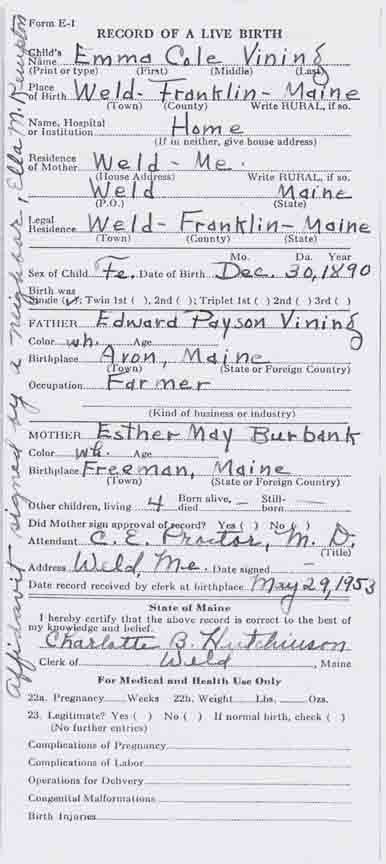 Form E-1
RECORD OF A LIVE BIRTH
Child's Name Emma Cole Vining
(Print or type) (First) (Middle) (Last)
Place of Birth Weld - Franklin - Maine
(Town) (County) Write RURAL, if so.
Name, Hospital or Institution Home
(If in neither, give house address)
Residence of Mother Weld - Me.
(House Address) Write RURAL, if so.
Weld Maine
(P.O.) (State)
Legal Residence Weld - Franklin - Maine
(Town) (County) (State)
Mo. Da. Year
Sex of Child Fe. Date of Birth Dec. 30, 1890
Birth was
Single (✓); Twin 1st ( ), 2nd ( ); Triplet 1st ( ) 2nd ( ) 3rd ( )
FATHER Edward Payson Vining
Color wh. Age
Birthplace Avon, Maine
(Town) (State or Foreign Country)
Occupation Farmer
(Kind of business or industry)
MOTHER Esther May Burbank
Color wh. Age
Birthplace Freeman, Maine
(Town) (State or Foreign Country)
Other children, living 4 Born alive, died — Still-born —
Did Mother sign approval of record? Yes ( ) No ( )
Attendant C. E. Proctor, M. D.
(Title)
Address Weld, Me. Date signed —
Date record received by clerk at birthplace May 29, 1953
State of Maine
I hereby certify that the above record is correct to the best of
my knowledge and belief.
Charlotte B. Hutchinson
Clerk of Weld, Maine
For Medical and Health Use Only
22a. Pregnancy Weeks 22b. Weight Lbs. Ozs.
23. Legitimate? Yes ( ) No ( ) If normal birth, check ( )
(No further entries)
Complications of Pregnancy
Complications of Labor
Operations for Delivery
Congenital Malformations
Birth Injuries
Affidavit signed by a neighbor, Ella M. Kempton